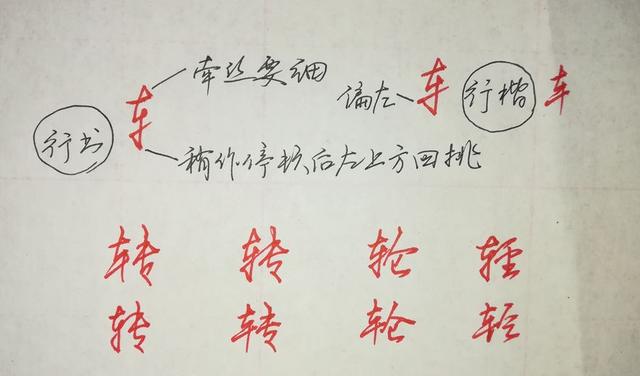 牵丝要细
偏左 车 行楷 车
行书 车
稍作停顿后左上方回挑
转 转 轮 轻
转 转 轮 轻